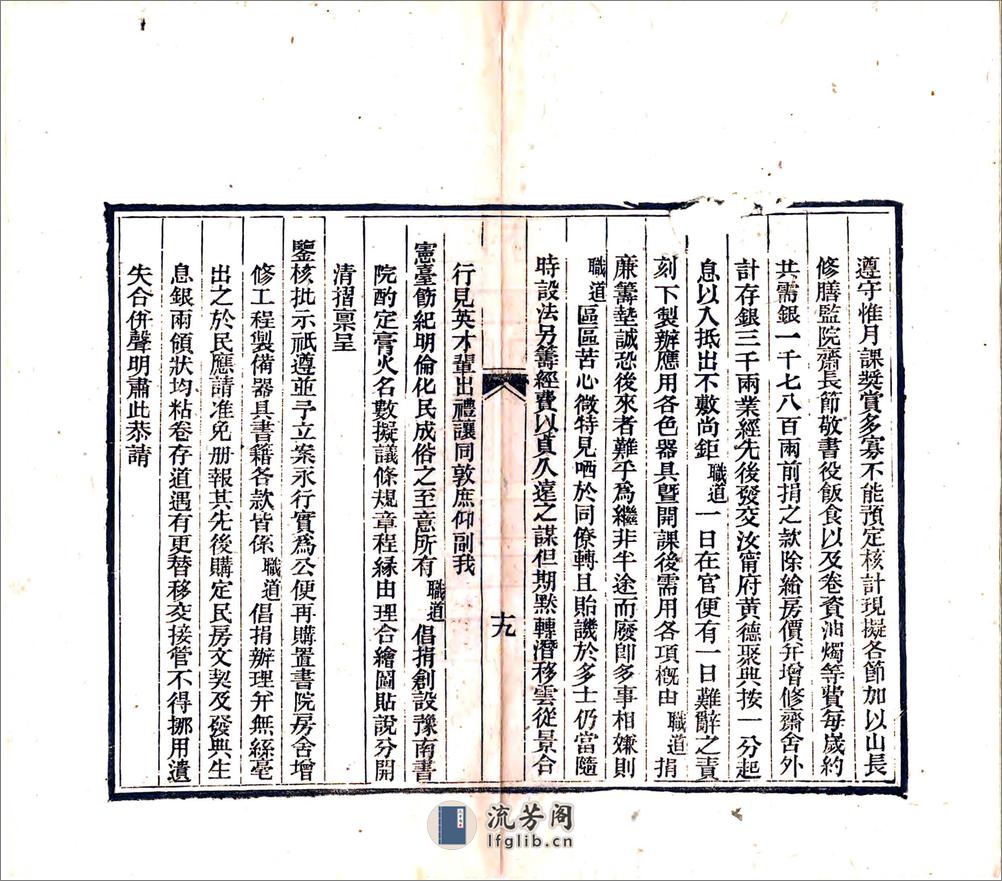 遵守惟月課獎賞多寡不能預定核計現擬各節加以山長
修膳監院齋長節敬書役飯食以及卷資油燭等費每歲約
共需銀一千七八百兩前捐之款除給房價并增修齋舍外
計存銀三千兩業經先後發交汝甯府黃德聚典按一分起
息以入抵出不敷尚鉅職道一日在官便有一日難辭之責
刻下製辦應用各色器具暨開課後需用各項概由職道捐
廉籌墊誠恐後來者難乎爲繼非半途而廢卽多事相嫌則
職道區區苦心微特見哂於同僚轉且貽譏於多士仍當隨
時設法另籌經費以貞久遠之謀但期默轉潛移雲從景合
十九
行見英才輩出禮讓同敦庶仰副我
憲臺飭紀明倫化民成俗之至意所有職道倡捐創設豫南書
院酌定膏火名數擬議條規章程緣由理合繪圖貼說分開
清摺稟呈
鑒核批示祇遵並予立案永行實爲公便再購置書院房舍增
修工程製備器具書籍各款皆係職道倡捐辦理并無絲毫
出之於民應請准免册報其先後購定民房文契及發典生
息銀兩領狀均粘卷存道遇有更替移交接管不得挪用遺
失合併聲明肅此恭請
流芳阁
lfglib.cn